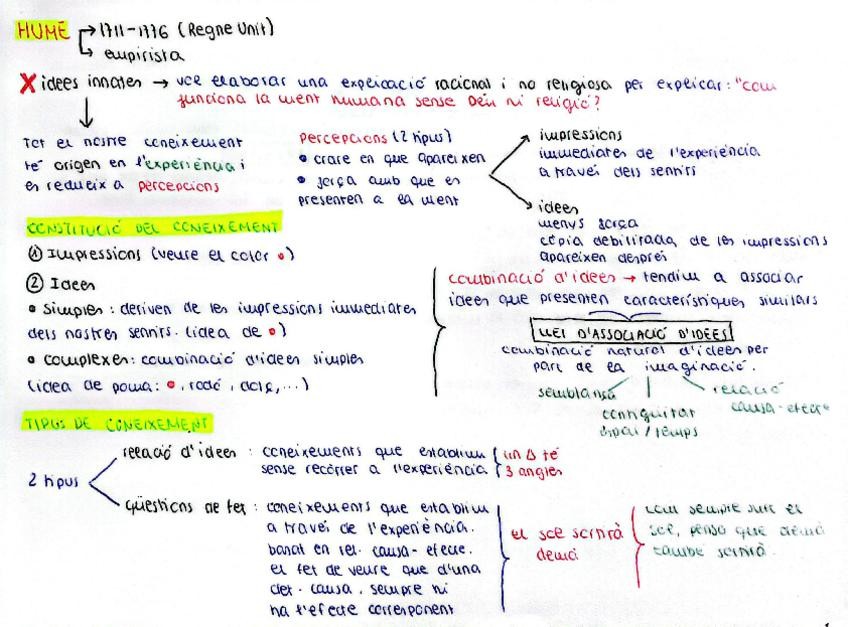 HUME → 1711-1776 (Regne Unit)
↳ empirista
X idees innates → vol elaborar una explicació racional i no religiosa per explicar: "com
funciona la ment humana sense Déu ni religió?
Tot el nostre coneixement
té origen en l'experiència i
es redueix a percepcions
Percepcions (2 tipus)
• orare en que apareixen
• força amb que es
presenten a la ment
impressions
immediates de l'experiència
a través dels sentits
idees
menys força
còpia debilitada de les impressions
apareixen després
CONSTITUCIÓ DEL CONEIXEMENT
① Impressions (veure el color •)
② Idees
• Simples: deriven de les impressions immediates
dels nostres sentits. (idea de •)
• Complexes: combinació d'idees simples
(idea de poma: •, rodó, dolç, ...)
combinació d'idees → tendim a associar
idees que presenten característiques similars
LLEI D'ASSOCIACIÓ D'IDEES
combinació natural d'idees per
part de la imaginació.
semblança
contigüitat
espai / temps
relació
causa-efecte
TIPUS DE CONEIXEMENT
2 tipus
relació d'idees: coneixements que establim
sense recórrer a l'experiència
un Δ té
3 angles
qüestions de fet: coneixements que establim
a través de l'experiència.
basat en rel. causa-efecte.
el fet de veure que d'una
det. causa, sempre hi
ha l'efecte corresponent
el sol sortirà
demà
com sempre surt el
sol, penso que demà
també sortirà.